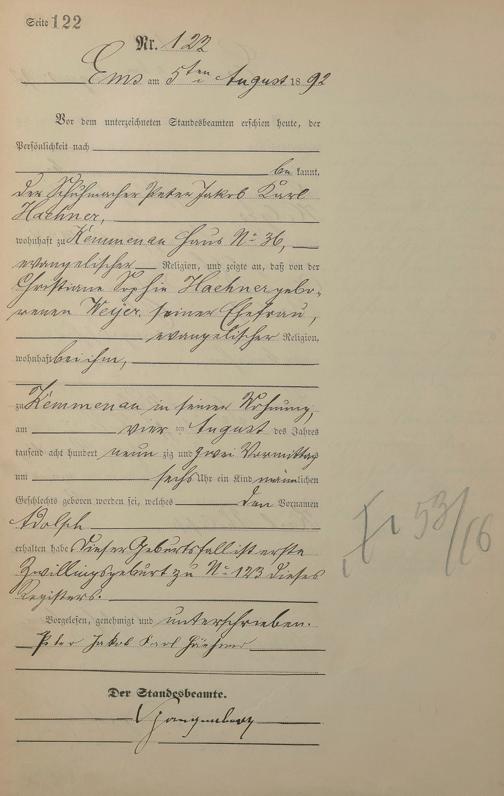 Seite 122
Nr. 122
Ems am 5ten August 1892
Vor dem unterzeichneten Standesbeamten erschien heute, der
Persönlichkeit nach
be kannt,
der Schuhmacher Peter Jakob Karl
Haehner,
wohnhaft zu Kemmenau Haus No 36,
evangelischer Religion, und zeigte an, daß von der
Christiane Sophie Haehner gebo-
renen Weyer, seiner Ehefrau,
evangelischer Religion,
wohnhaft bei ihm,
zu Kemmenau in seiner Wohnung,
am vier ten August des Jahres
tausend acht hundert neun zig und zwei Vormittag
um sechs Uhr ein Kind männlichen
Geschlechts geboren worden sei, welches den Vornamen
Adolph
erhalten habe Dieser Geburtsfall ist erste
Zwillingsgeburt zu No 123 dieses
Registers.
Vorgelesen, genehmigt und unterschrieben.
Peter Jakob Karl Hähner
Der Standesbeamte.
53/16